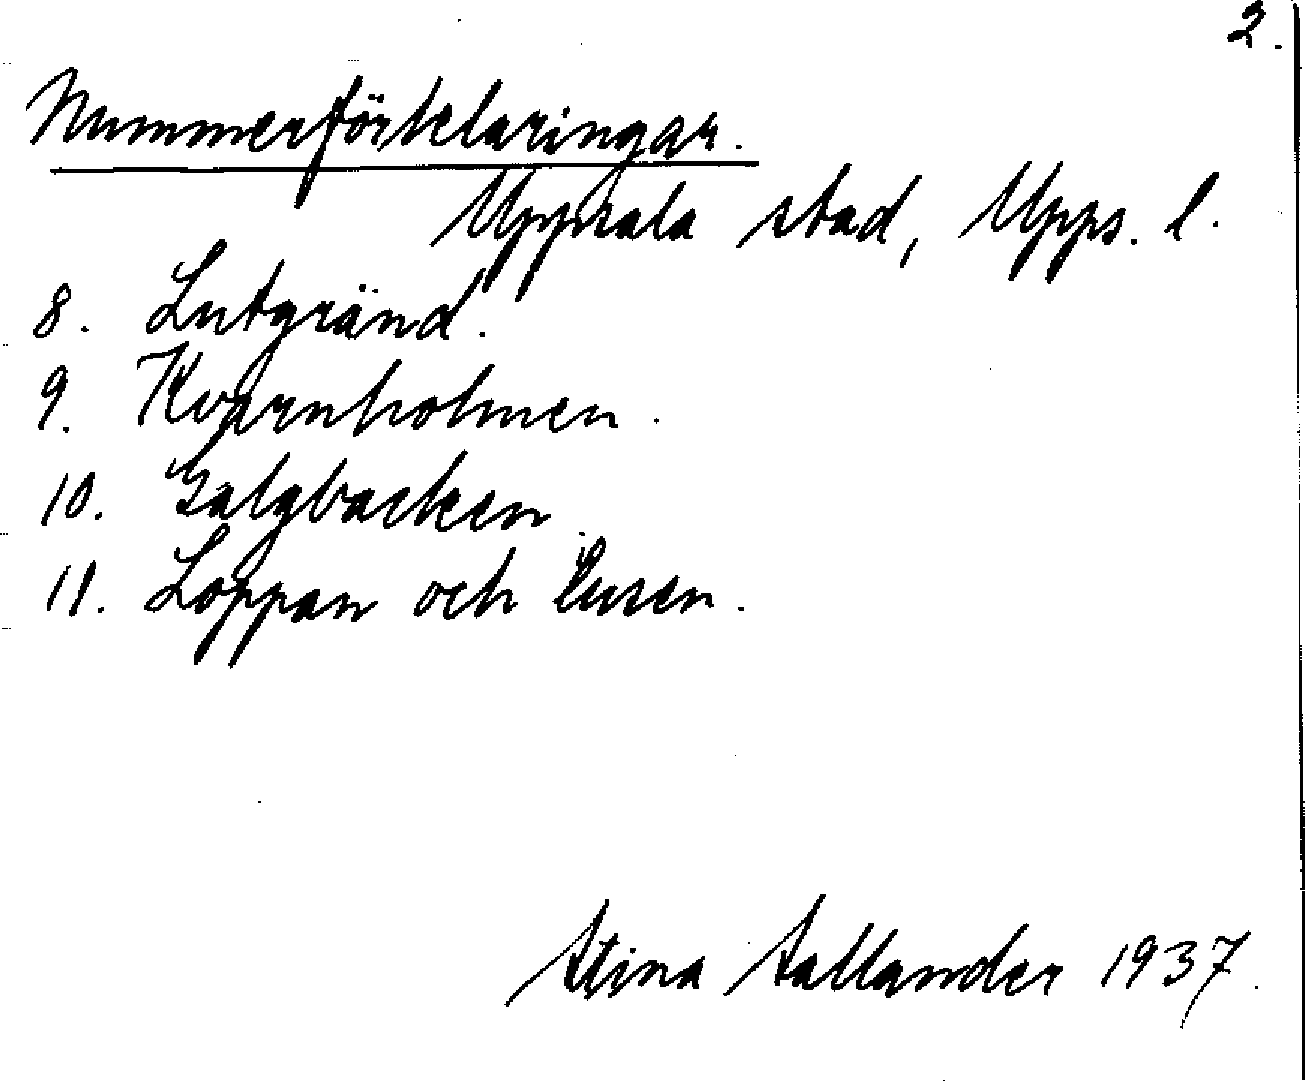 2.
Nummerförklaringar.
Uppsala stad, Upps. l.
8. Lutgränd.
9. Kvarnholmen.
10. Galgbacken
11. Loppan och Lusen.
Stina Sallander 1937.